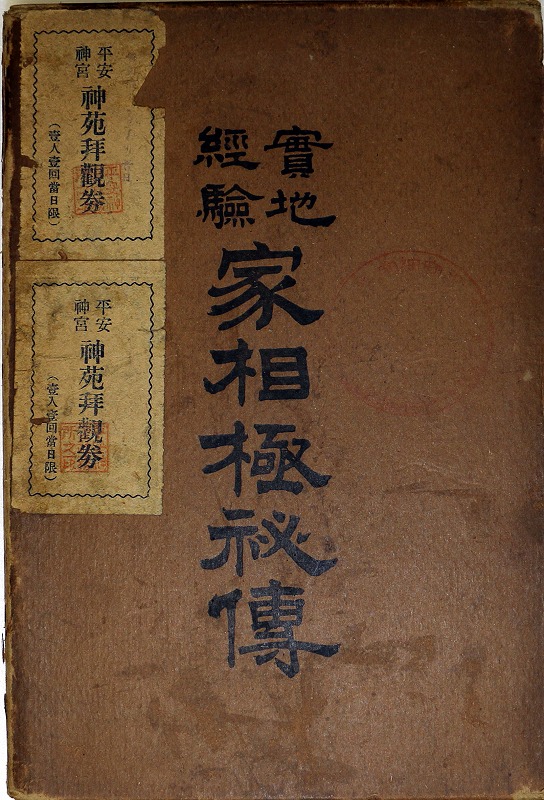 實地
經驗
家相極祕傳
平安
神宮
神苑拜觀券
(壹人壹回當日限)
平安
神宮
神苑拜觀券
(壹人壹回當日限)